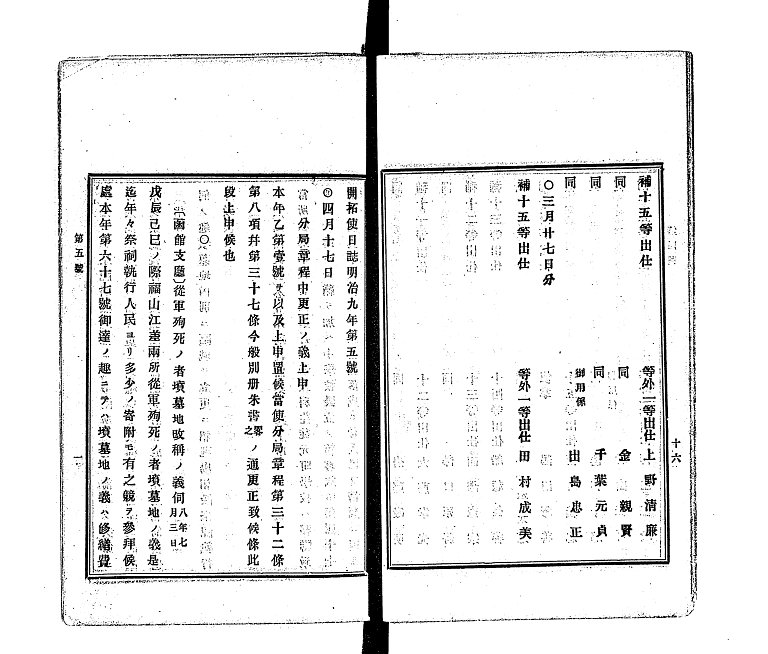 十六
補十五等出仕　等外二等出仕　上野清廉
同　同　金親賢
同　同　千葉元貞
同　御用係　出島忠正
〇三月廿七日分
補十五等出仕　等外一等出仕　田村成美
開拓使日誌明治九年第五號
四月十七日
分局章程中更正ノ義上申
本年乙第壹號ヲ以及上申置候當使分局章程第三十二條
第八項幷第三十七條今般別册朱書略之ノ通更正致候條此
段上申候也
〇
函館支廳從軍殉死ノ者墳墓地改稱ノ義伺八年七月三日
戊辰己巳ノ際福山江差兩所從軍殉死ノ者墳墓地ノ義是
迄年々祭祠執行人民ヨリ多少ノ寄附モ有之競テ參拜候
處本年第六十七號御達ノ趣モ有之墳墓地ノ義ハ修繕費
第五號
一